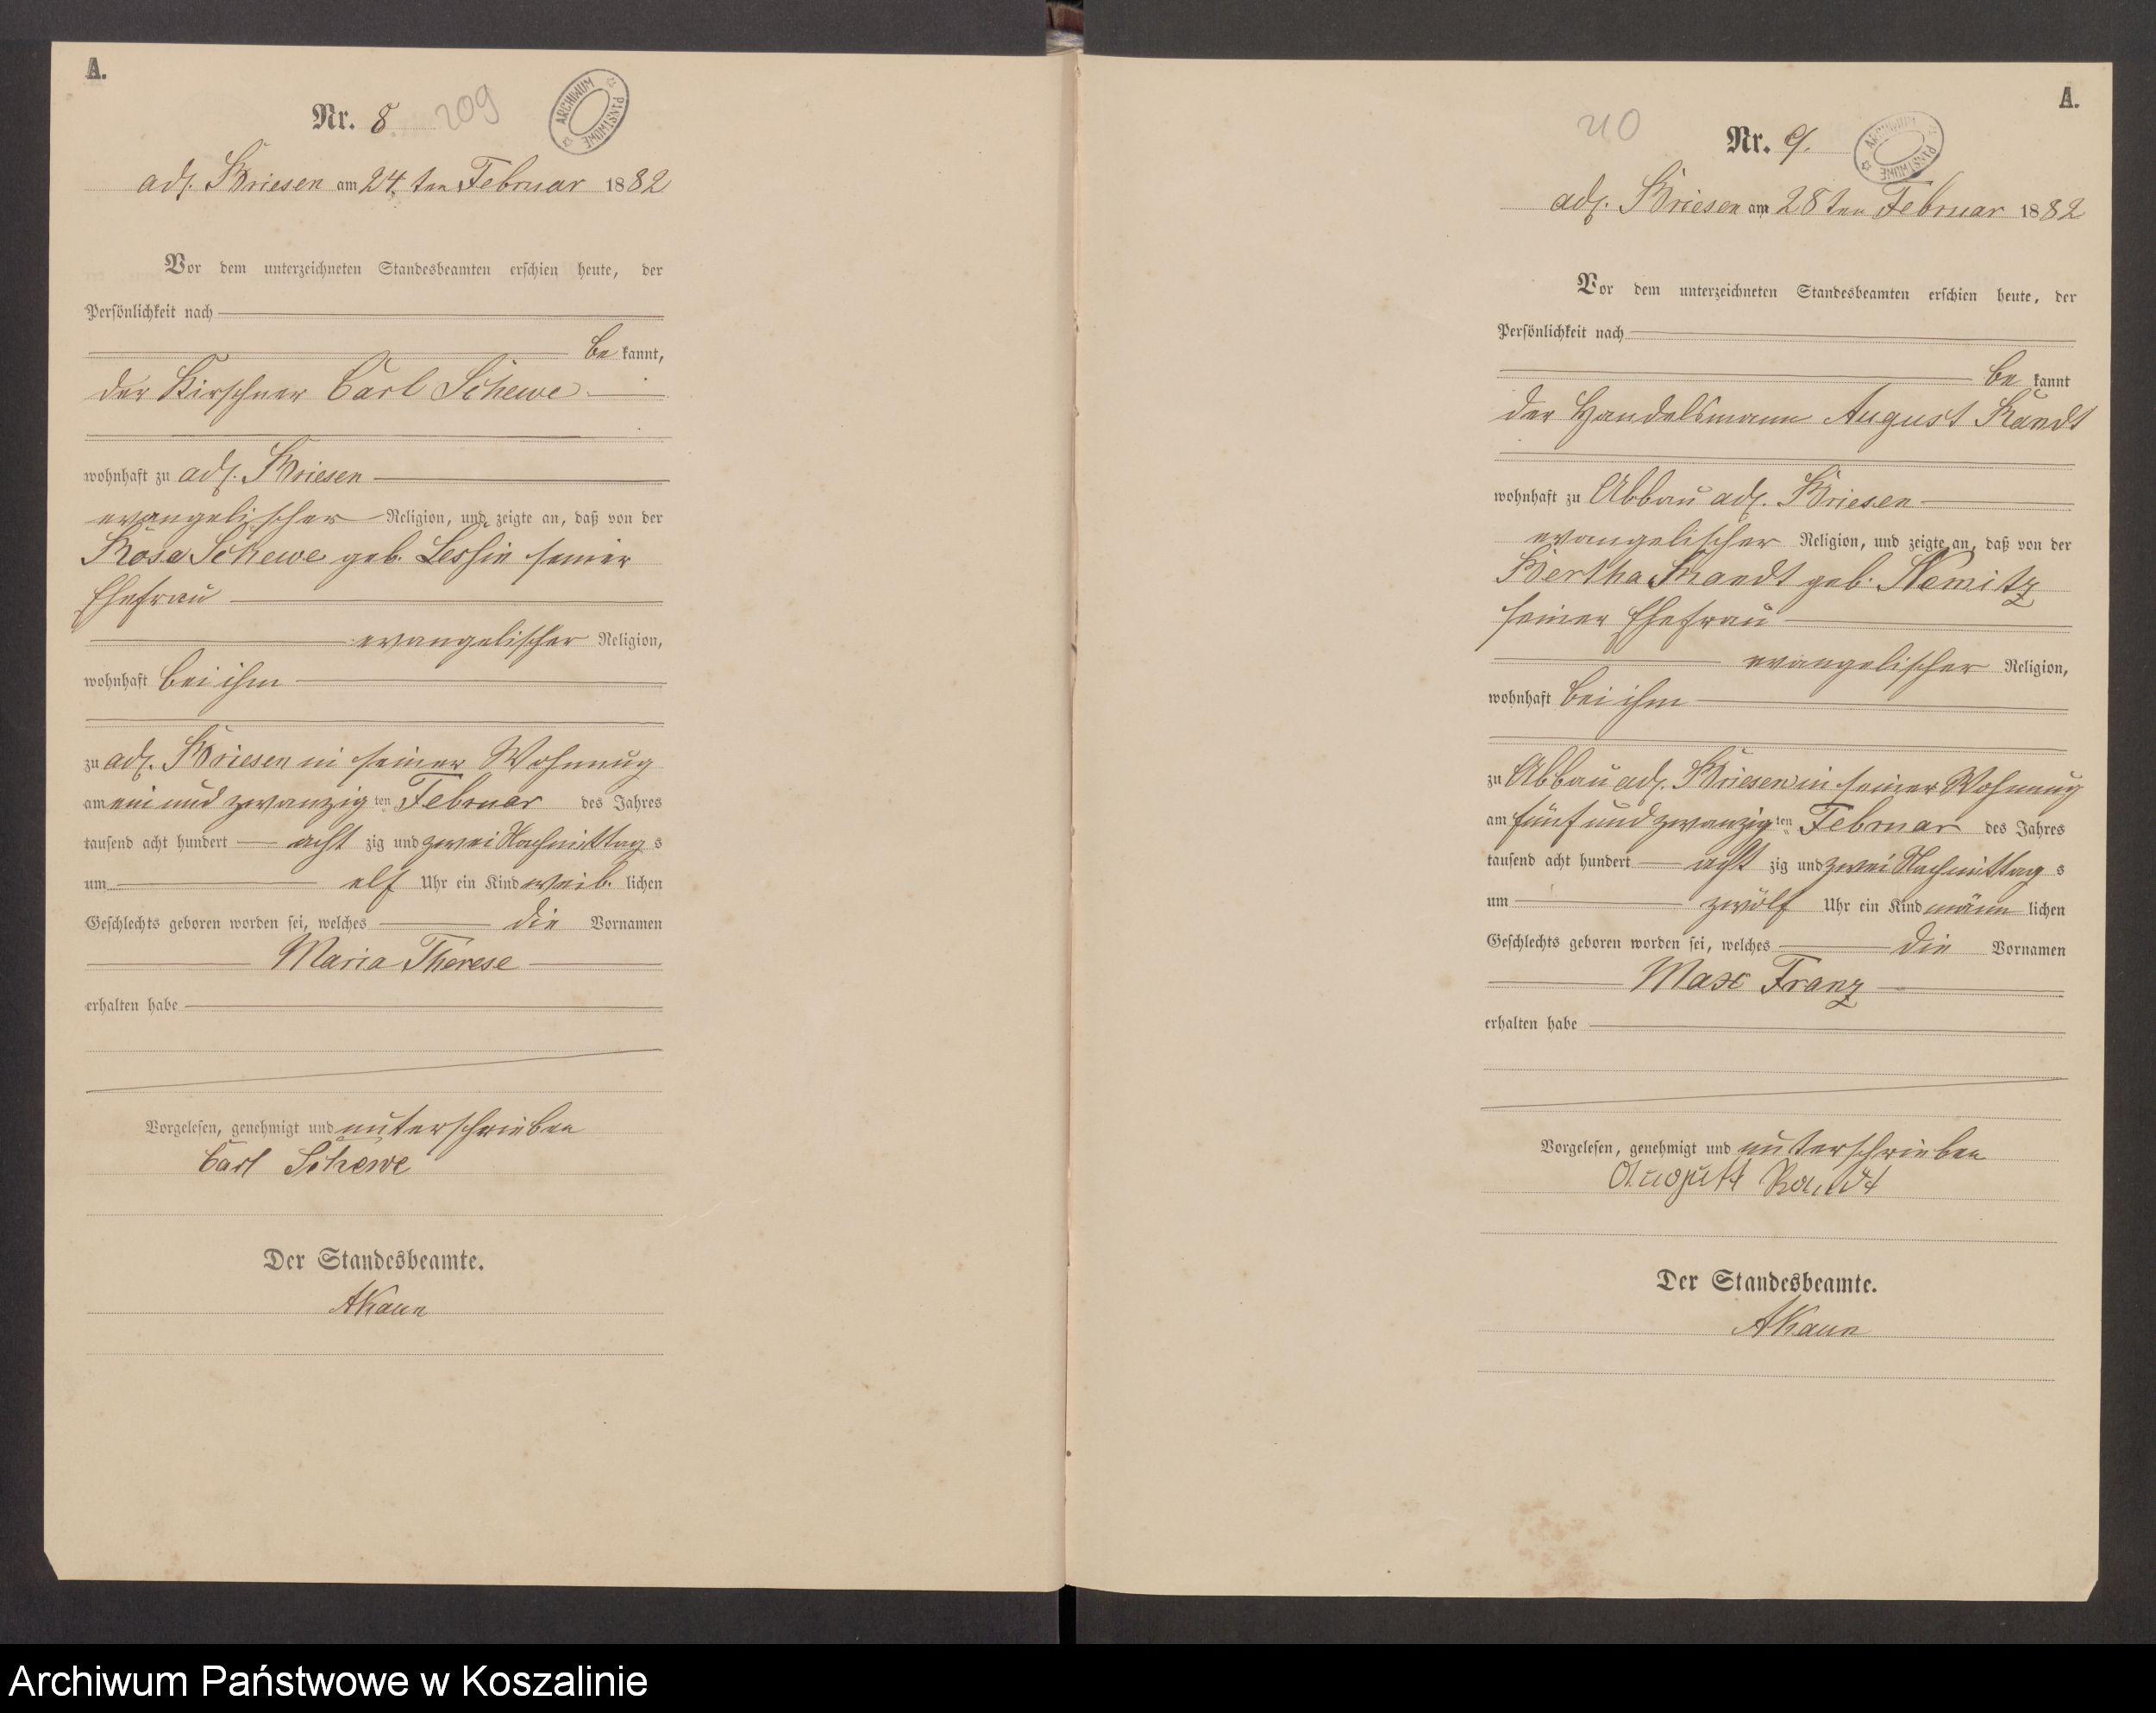 A.
Nr. 8 209
ARCHIWUM PAŃSTWOWE
adl. Briesen am 24. ten Februar 1882
Vor dem unterzeichneten Standesbeamten erschien heute, der
Persönlichkeit nach
be kannt,
der Kirschner Carl Schewe
wohnhaft zu adl. Briesen
evangelischer Religion, und zeigte an, daß von der
Rosa Schewe geb. Leskin seiner
Ehefrau
evangelischer Religion,
wohnhaft bei ihm
zu adl. Briesen in seiner Wohnung
am ein und zwanzig ten Februar des Jahres
tausend acht hundert acht zig und zwei Nachmittag s
um elf Uhr ein Kind weib. lichen
Geschlechts geboren worden sei, welches die Vornamen
Maria Therese
erhalten habe
Vorgelesen, genehmigt und unterschrieben
Carl Schewe
Der Standesbeamte.
AKaun
A.
210
Nr. 9.
ARCHIWUM PAŃSTWOWE
adl. Briesen am 28 ten Februar 1882
Vor dem unterzeichneten Standesbeamten erschien heute, der
Persönlichkeit nach
be kannt
der Handelsmann August Randt
wohnhaft zu Abbau adl. Briesen
evangelischer Religion, und zeigte an, daß von der
Bertha Randt geb. Nemitz
seiner Ehefrau
evangelischer Religion,
wohnhaft bei ihm
zu Abbau adl. Briesen in seiner Wohnung
am fünf und zwanzig ten Februar des Jahres
tausend acht hundert acht zig und zwei Nachmittag s
um zwölf Uhr ein Kind männ lichen
Geschlechts geboren worden sei, welches die Vornamen
Max Franz
erhalten habe
Vorgelesen, genehmigt und unterschrieben
August Randt
Der Standesbeamte.
AKaun
Archiwum Państwowe w Koszalinie